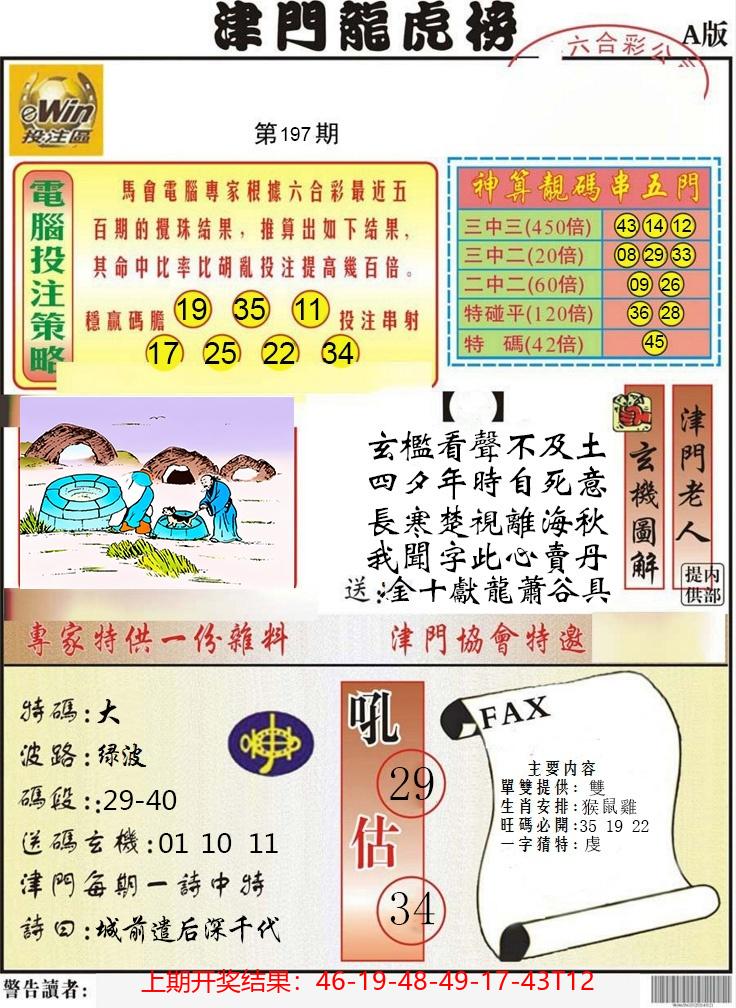 津門龍虎榜
A版
六合彩公
eWin
投注區
第197期
電腦投注策略
馬會電腦專家根據六合彩最近五
百期的攪珠结果，推算出如下结果，
其命中比率比胡亂投注提高幾百倍。
穩贏碼膽 19 35 11 投注串射
17 25 22 34
神算靚碼串五門
三中三(450倍) 43 14 12
三中二(20倍) 08 29 33
二中二(60倍) 09 26
特碰平(120倍) 36 28
特 碼(42倍) 45
【 】
玄檻看聲不及土
四夕年時自死意
長寒楚視離海秋
我聞字此心賣丹
送:金十獻龍蕭谷具
玄機圖解
津門老人
内部提供
專家特供一份雜料
津門協會特邀
特碼:大
波路:绿波
碼段::29-40
送碼玄機:01 10 11
津門每期一詩中特
詩曰:城前遣后深千代
吼
29
估
34
FAX
主要内容
單雙提供: 雙
生肖安排:猴鼠雞
旺碼必開:35 19 22
一字猜特: 虔
警告讀者:
上期开奖结果：46-19-48-49-17-43T12